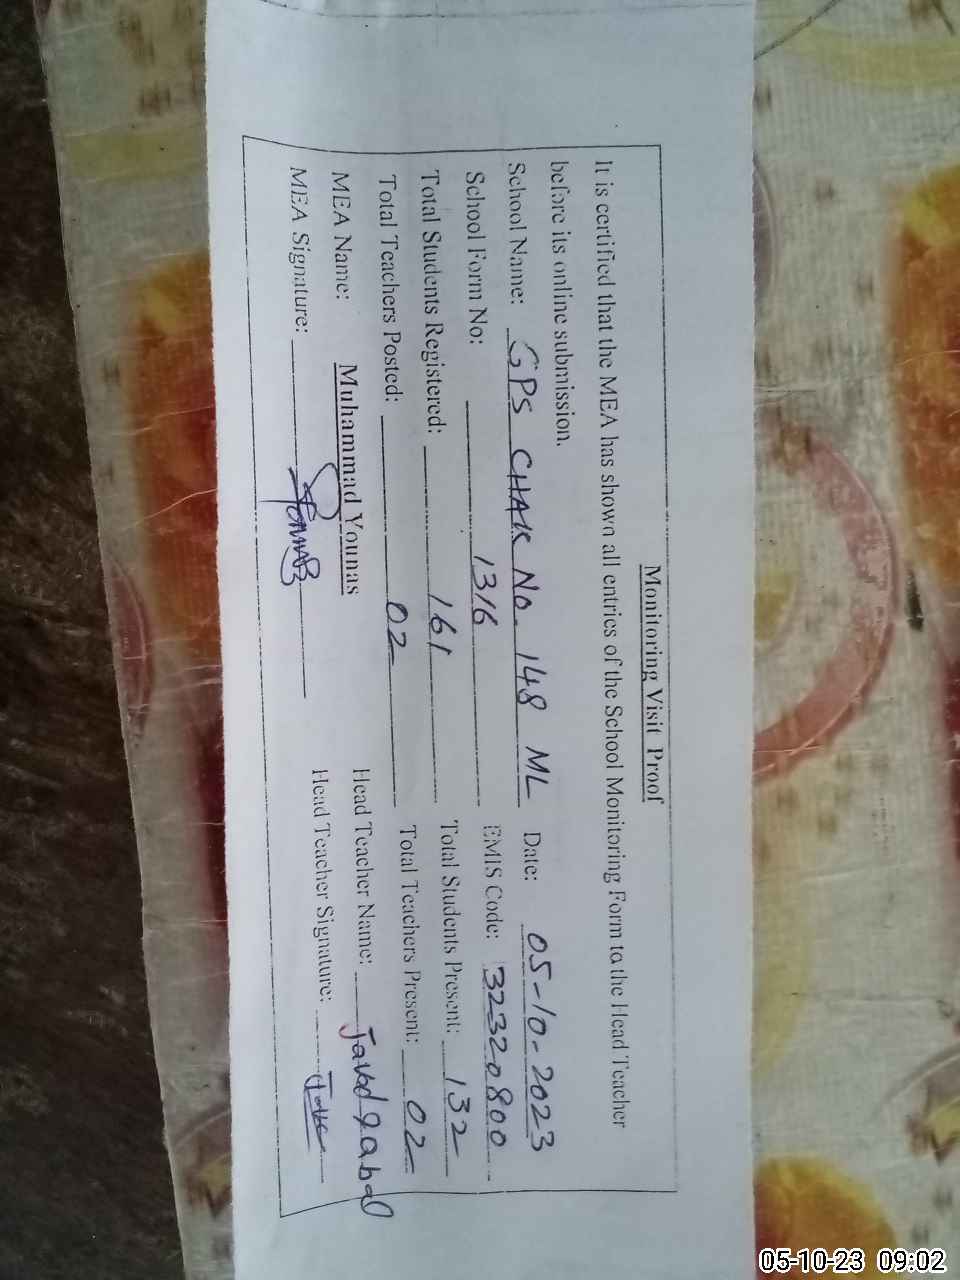 Monitoring Visit Proof
It is certified that the MEA has shown all entries of the School Monitoring Form to the Head Teacher
before its online submission.
School Name: GPS CHAK No. 148 ML Date: 05-10-2023
School Form No: 1316 EMIS Code: 32320800
Total Students Registered: 161 Total Students Present: 132
Total Teachers Posted: 02 Total Teachers Present: 02
MEA Name: Muhammad Younas Head Teacher Name: Javed Iqbal
MEA Signature: Head Teacher Signature:
05-10-23 09:02